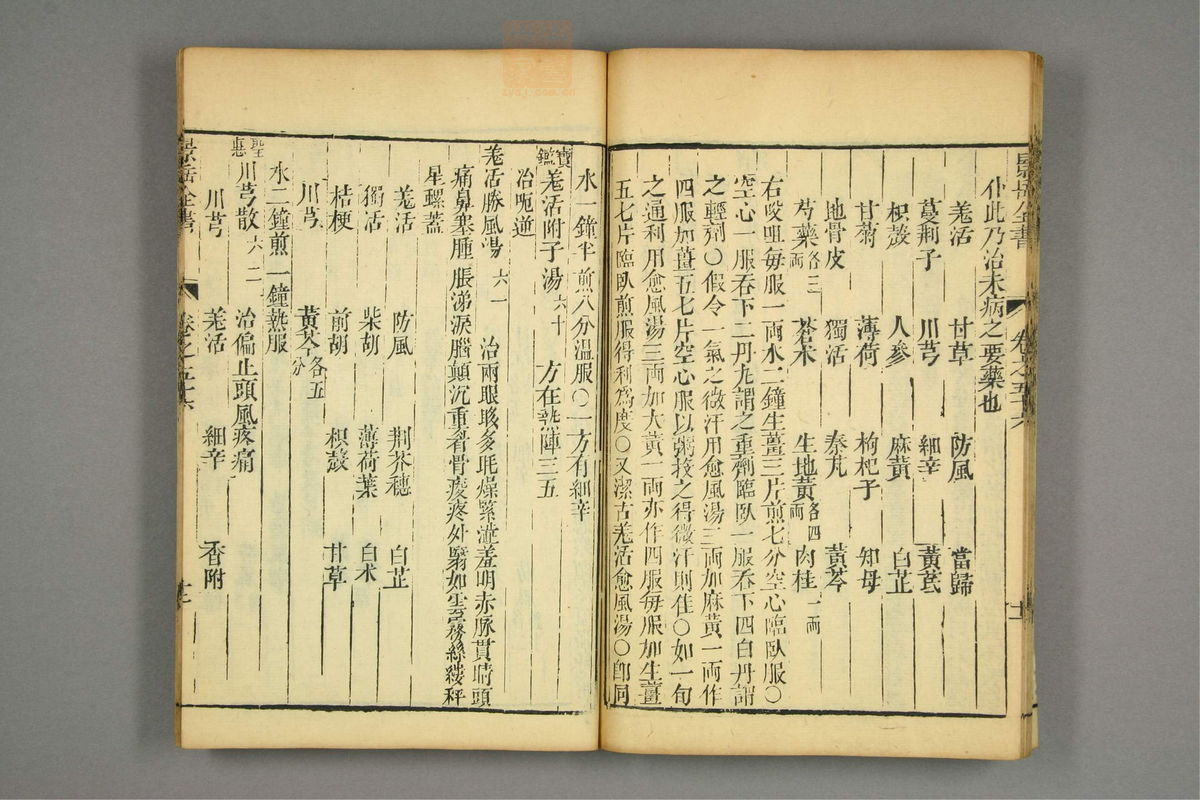 景岳全書 卷之五十六
仆此乃治未病之要藥也
羗活 甘草 防風 當歸
蔓荆子 川芎 細辛 黃芪
枳殼 人參 麻黃 白芷
甘菊 薄荷 枸杞子 知母
地骨皮 獨活 秦艽 黃芩
芍藥各三兩 蒼术 生地黃各四兩 肉桂一兩
右㕮咀每服一兩水二鐘生薑三片煎七分空心臨臥服○
空心一服吞下二丹丸謂之重劑臨臥一服吞下四白丹謂
之輕劑○假令一氣之微汗用愈風湯三兩加麻黃一兩作
四服加薑五七片空心服以粥投之得微汗則佳○如一旬
之通利用愈風湯三兩加大黃一兩亦作四服每服加生薑
五七片臨臥煎服得利為度○又潔古羗活愈風湯○卽同
水一鐘半煎八分溫服○一方有細辛
寶鑑羗活附子湯六十 方在熱陣三五
治呃逆
羗活勝風湯六一 治兩眼眵多眊燥緊澁羞明赤脉貫睛頭
痛鼻塞腫脹涕淚腦巔沉重眉骨痠疼外翳如雲霧絲縷秤
星螺蓋
羗活 防風 荆芥穗 白芷
獨活 柴胡 薄荷葉 白术
桔梗 前胡 枳殼 甘草
川芎 黃芩各五分
水二鐘煎一鐘熱服
聖惠川芎散六二 治偏正頭風疼痛
川芎 羗活 細辛 香附
景岳全書 卷之五十六